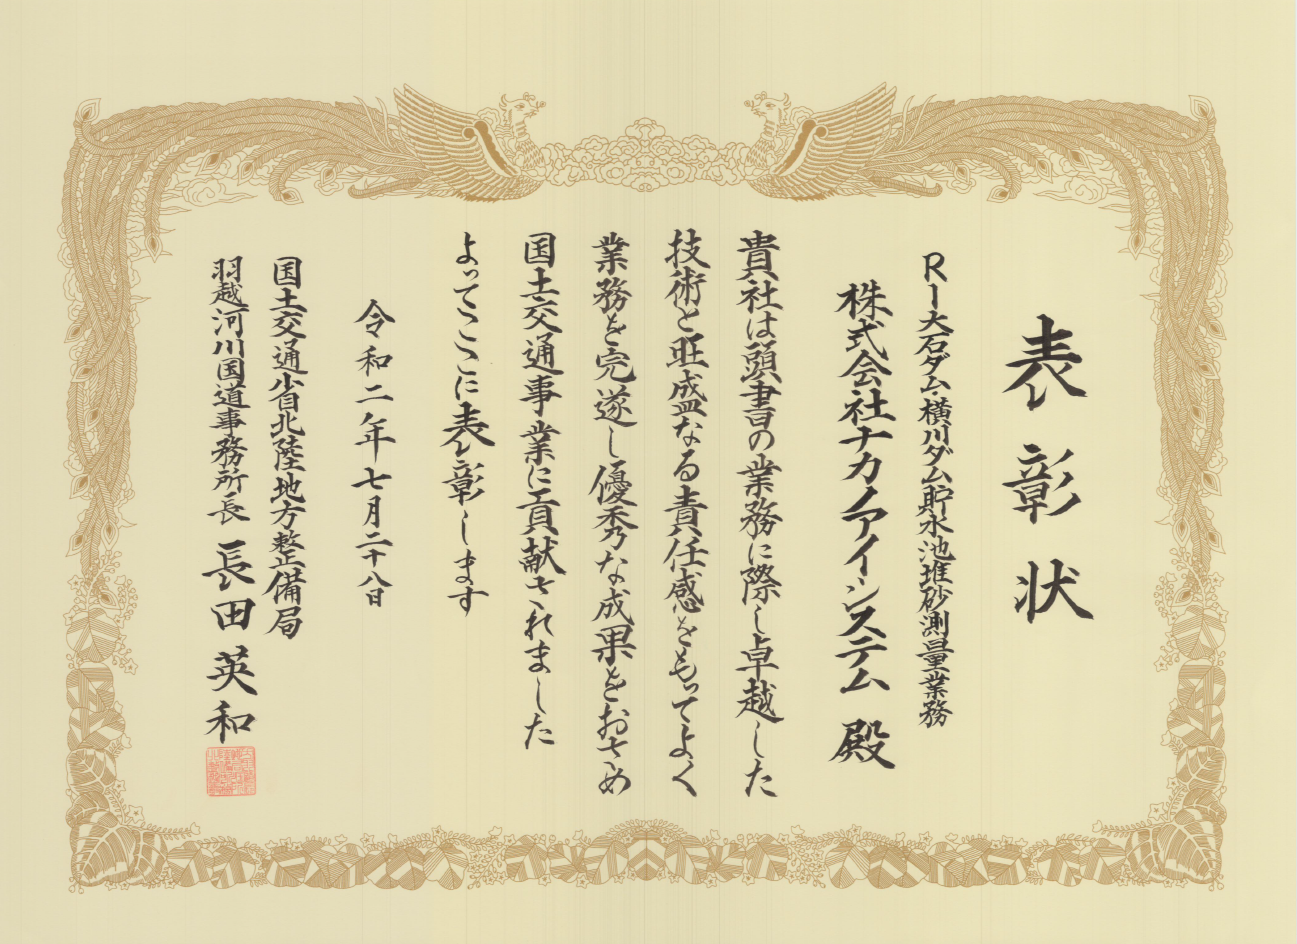 表彰状
R1大石ダム・横川ダム貯水池堆砂測量業務
株式会社ナカノアイシステム 殿
貴社は頭書の業務に際し卓越した
技術と旺盛なる責任感をもってよく
業務を完遂し優秀な成果をおさめ
国土交通事業に貢献されました
よってここに表彰します
令和二年七月二十八日
国土交通省北陸地方整備局
羽越河川国道事務所長 長田英和